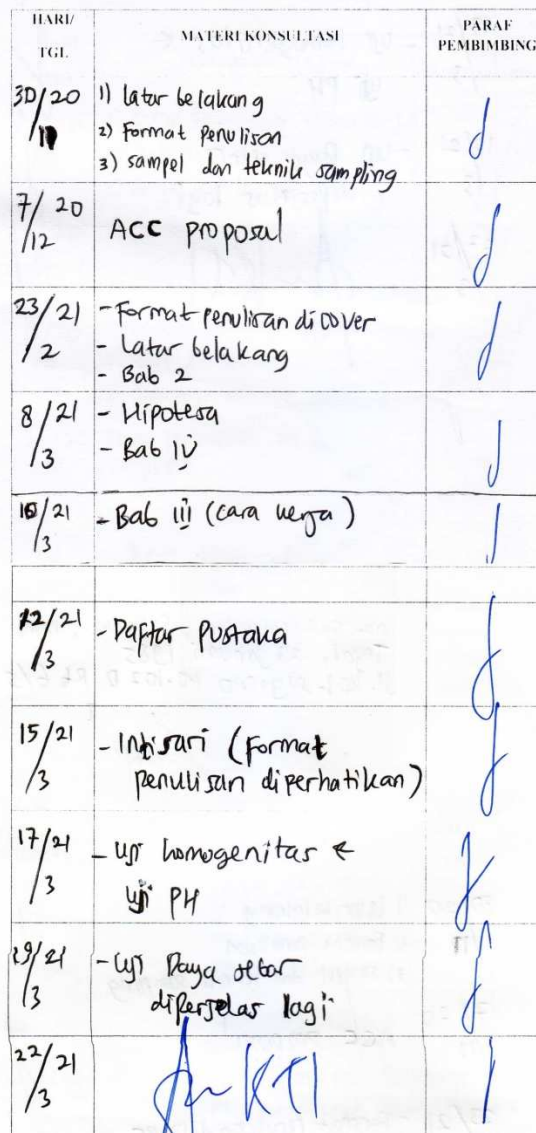 HARI/ TGL. MATERI KONSULTASI PARAF PEMBIMBING
30/20 1) latar belakang
/11 2) Format penulisan
3) sampel dan teknik sampling
7/20 ACC proposal
/12
23/21 - Format penulisan di cover
/2 - Latar belakang
- Bab 2
8/21 - Hipotesa
/3 - Bab IV
10/21 - Bab III (cara kerja)
/3
12/21 - Daftar Pustaka
/3
15/21 - Intisari (format
/3 penulisan diperhatikan)
17/21 - Uji homogenitas &
/3 uji PH
19/21 - Uji Daya sebar
/3 diperjelas lagi
22/21 KTI
/3